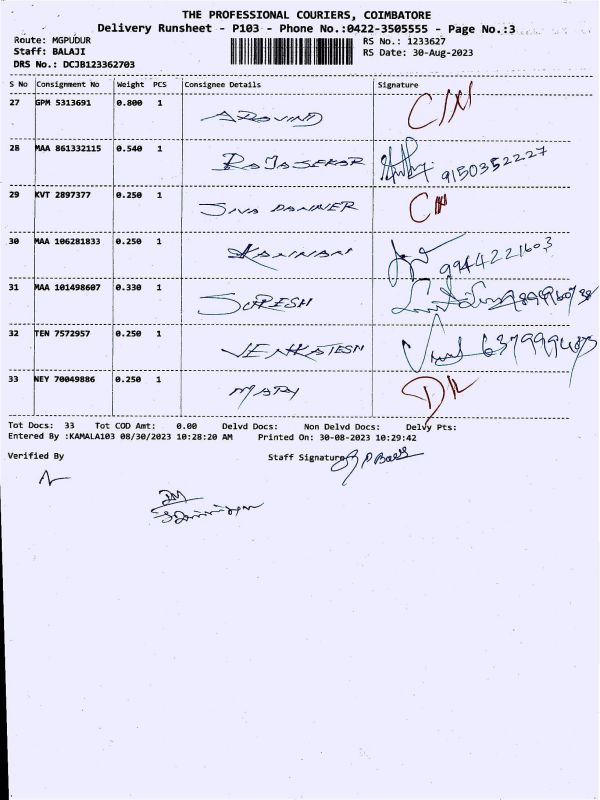 THE PROFESSIONAL COURIERS, COIMBATORE
Delivery Runsheet - P103 - Phone No.:0422-3505555 - Page No.:3
Route: MGPUDUR RS No.: 1233627
Staff: BALAJI RS Date: 30-Aug-2023
DRS No.: DCJB123362703
S No Consignment No Weight PCS Consignee Details Signature
27 GPM 5313691 0.800 1 AROVIND
28 MAA 861332115 0.540 1 RAJASEKAR 9150352227
29 KVT 2897377 0.250 1 SIVA
30 MAA 106281833 0.250 1 KANNAN 9944221603
31 MAA 101498607 0.330 1 SURESH
32 TEN 7572957 0.250 1 VENKATESH
33 NEY 70049886 0.250 1 MARY
Tot Docs: 33 Tot COD Amt: 0.00 Delvd Docs: Non Delvd Docs: Delvy Pts:
Entered By :KAMALA103 08/30/2023 10:28:20 AM Printed On: 30-08-2023 10:29:42
Verified By Staff Signature